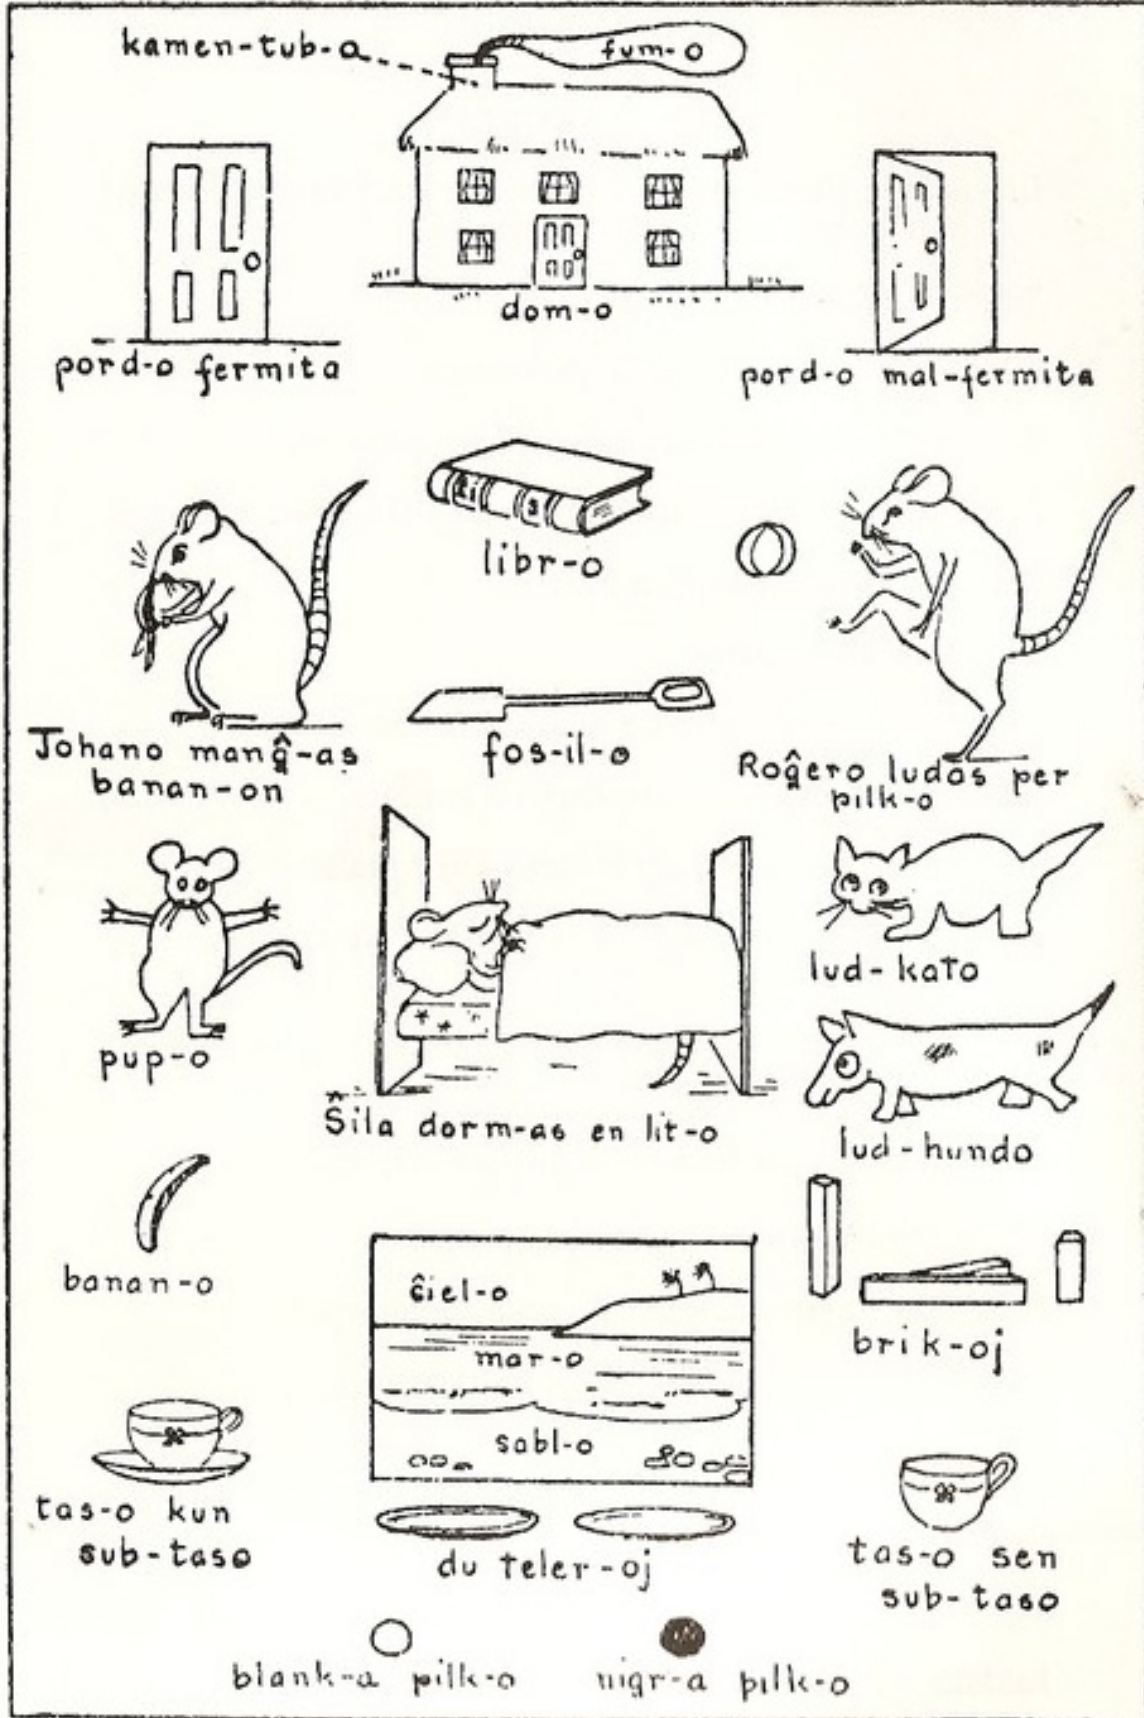 kamen-tub-o
fum-o
dom-o
pord-o fermita
pord-o mal-fermita
libr-o
Johano manĝ-as
banan-on
fos-il-o
Roĝero ludas per
pilk-o
pup-o
Ŝila dorm-as en lit-o
lud-kato
lud-hundo
banan-o
ĉiel-o
mar-o
sabl-o
brik-oj
tas-o kun
sub-taso
du teler-oj
tas-o sen
sub-taso
blank-a pilk-o
nigr-a pilk-o